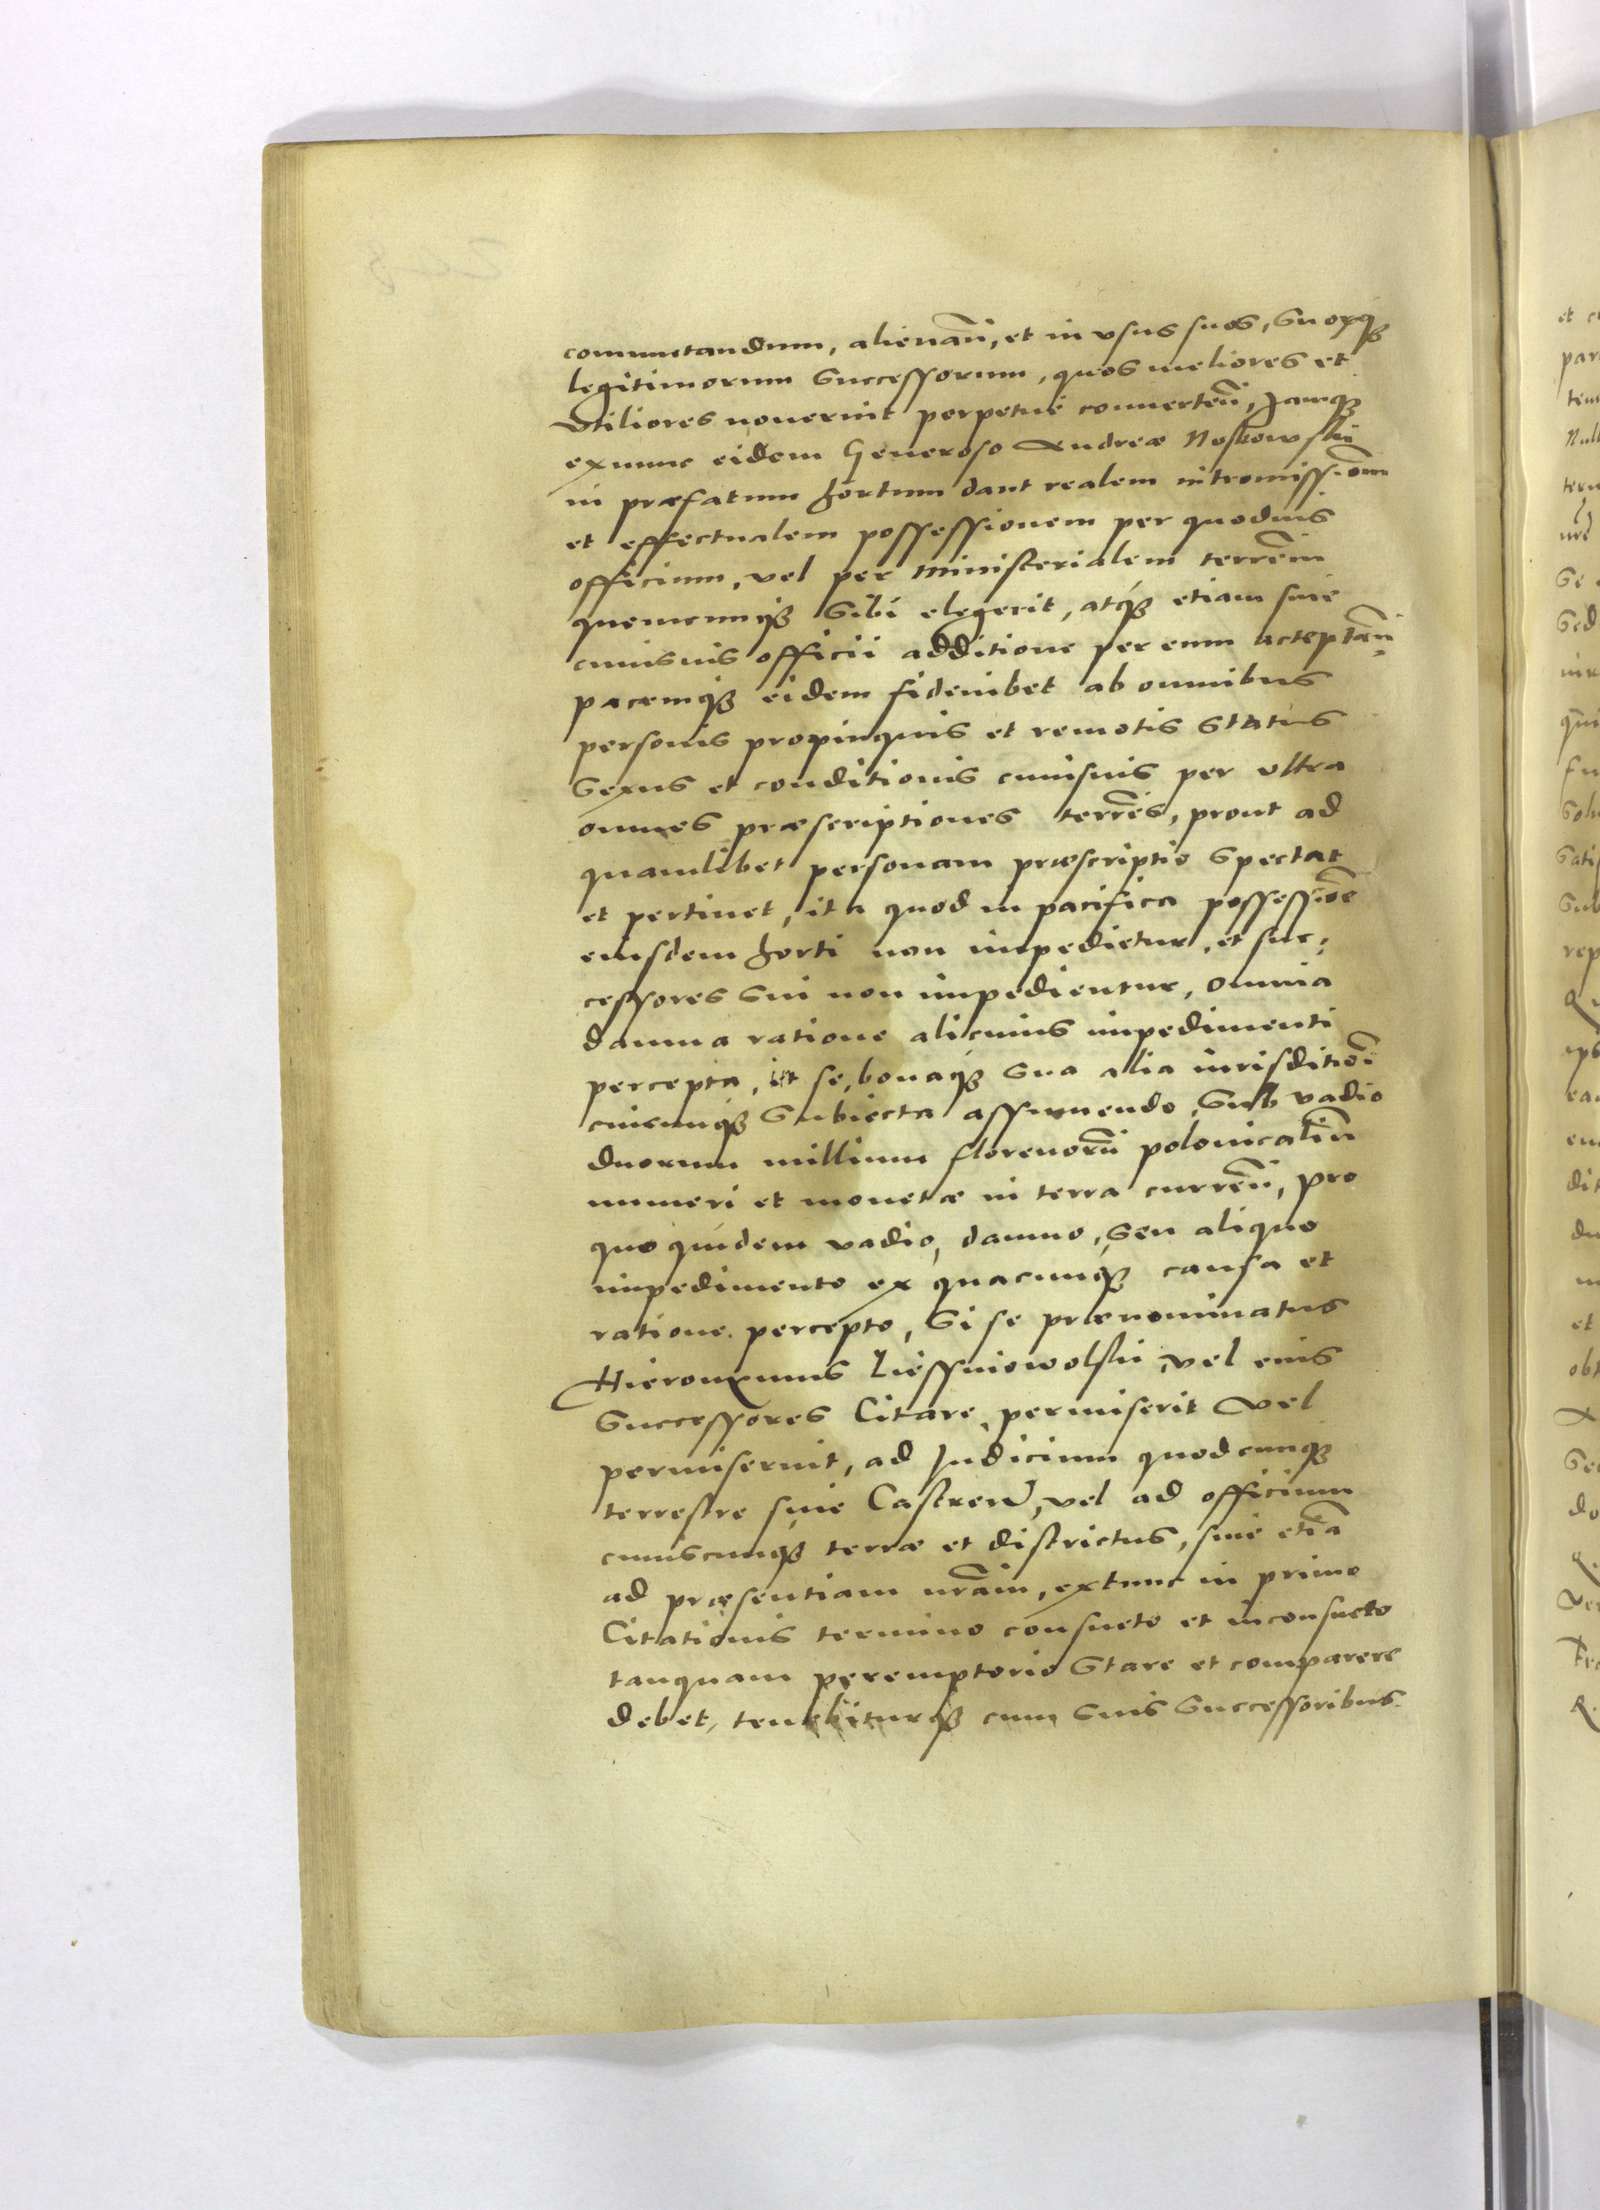 commutandum, alienañ, et in vsus suos, suorq3
legitimorum successorum, quos meliores et
vtiliores nouerint perpetuè conuerteñ, Jamq3
exnunc eidem Generoso Andreæ Noskowskÿ
in præfatum hortum dant realem intromissionẽ
et effectualem possessionem per quoduis
officium, vel per ministerialem terrẽm
quemcumq3 sibi elegerit, atq3 etiam sine
cuiusuis officii additione per eum acceptañ,
pacemq3 eidem fideiubet ab omnibus
personis propinquis et remotis status
sexus et conditionis cuiusuis per vltra
omnes præscriptiones terrẽs, prout ad
quamlibet personam præscriptio spectat
et pertinet, ita quod in pacifica possessiõe
eiusdem horti non impedietur, et suc-
cessores sui non impedientur, omnia
damna ratione alicuius impedimenti
percepta, in se, bonaq3 sua alia iurisditiõi
cuicunq3 subiecta assumendo, sub vadio
duorum millium florenorũ polonicaliũ
numeri et monetæ in terra curreñ, pro
quo quidem vadio, damno, seu aliquo
impedimento ex quacunq3 causa et
ratione percepto, si se prænominatus
Hieronymus Liessniowolski, vel eius
successores Citare permiserit vel
permiserint, ad Judicium quodcunq3
terrestre siue Castreñ, vel ad officium
cuiuscunq3 terræ et districtus, siue etiã
ad præsentiam nrãm, extunc in primo
Citationis termino consueto et inconsueto
tanquam peremptorio stare et comparere
debet, tenebiturq3 cum suis successoribus